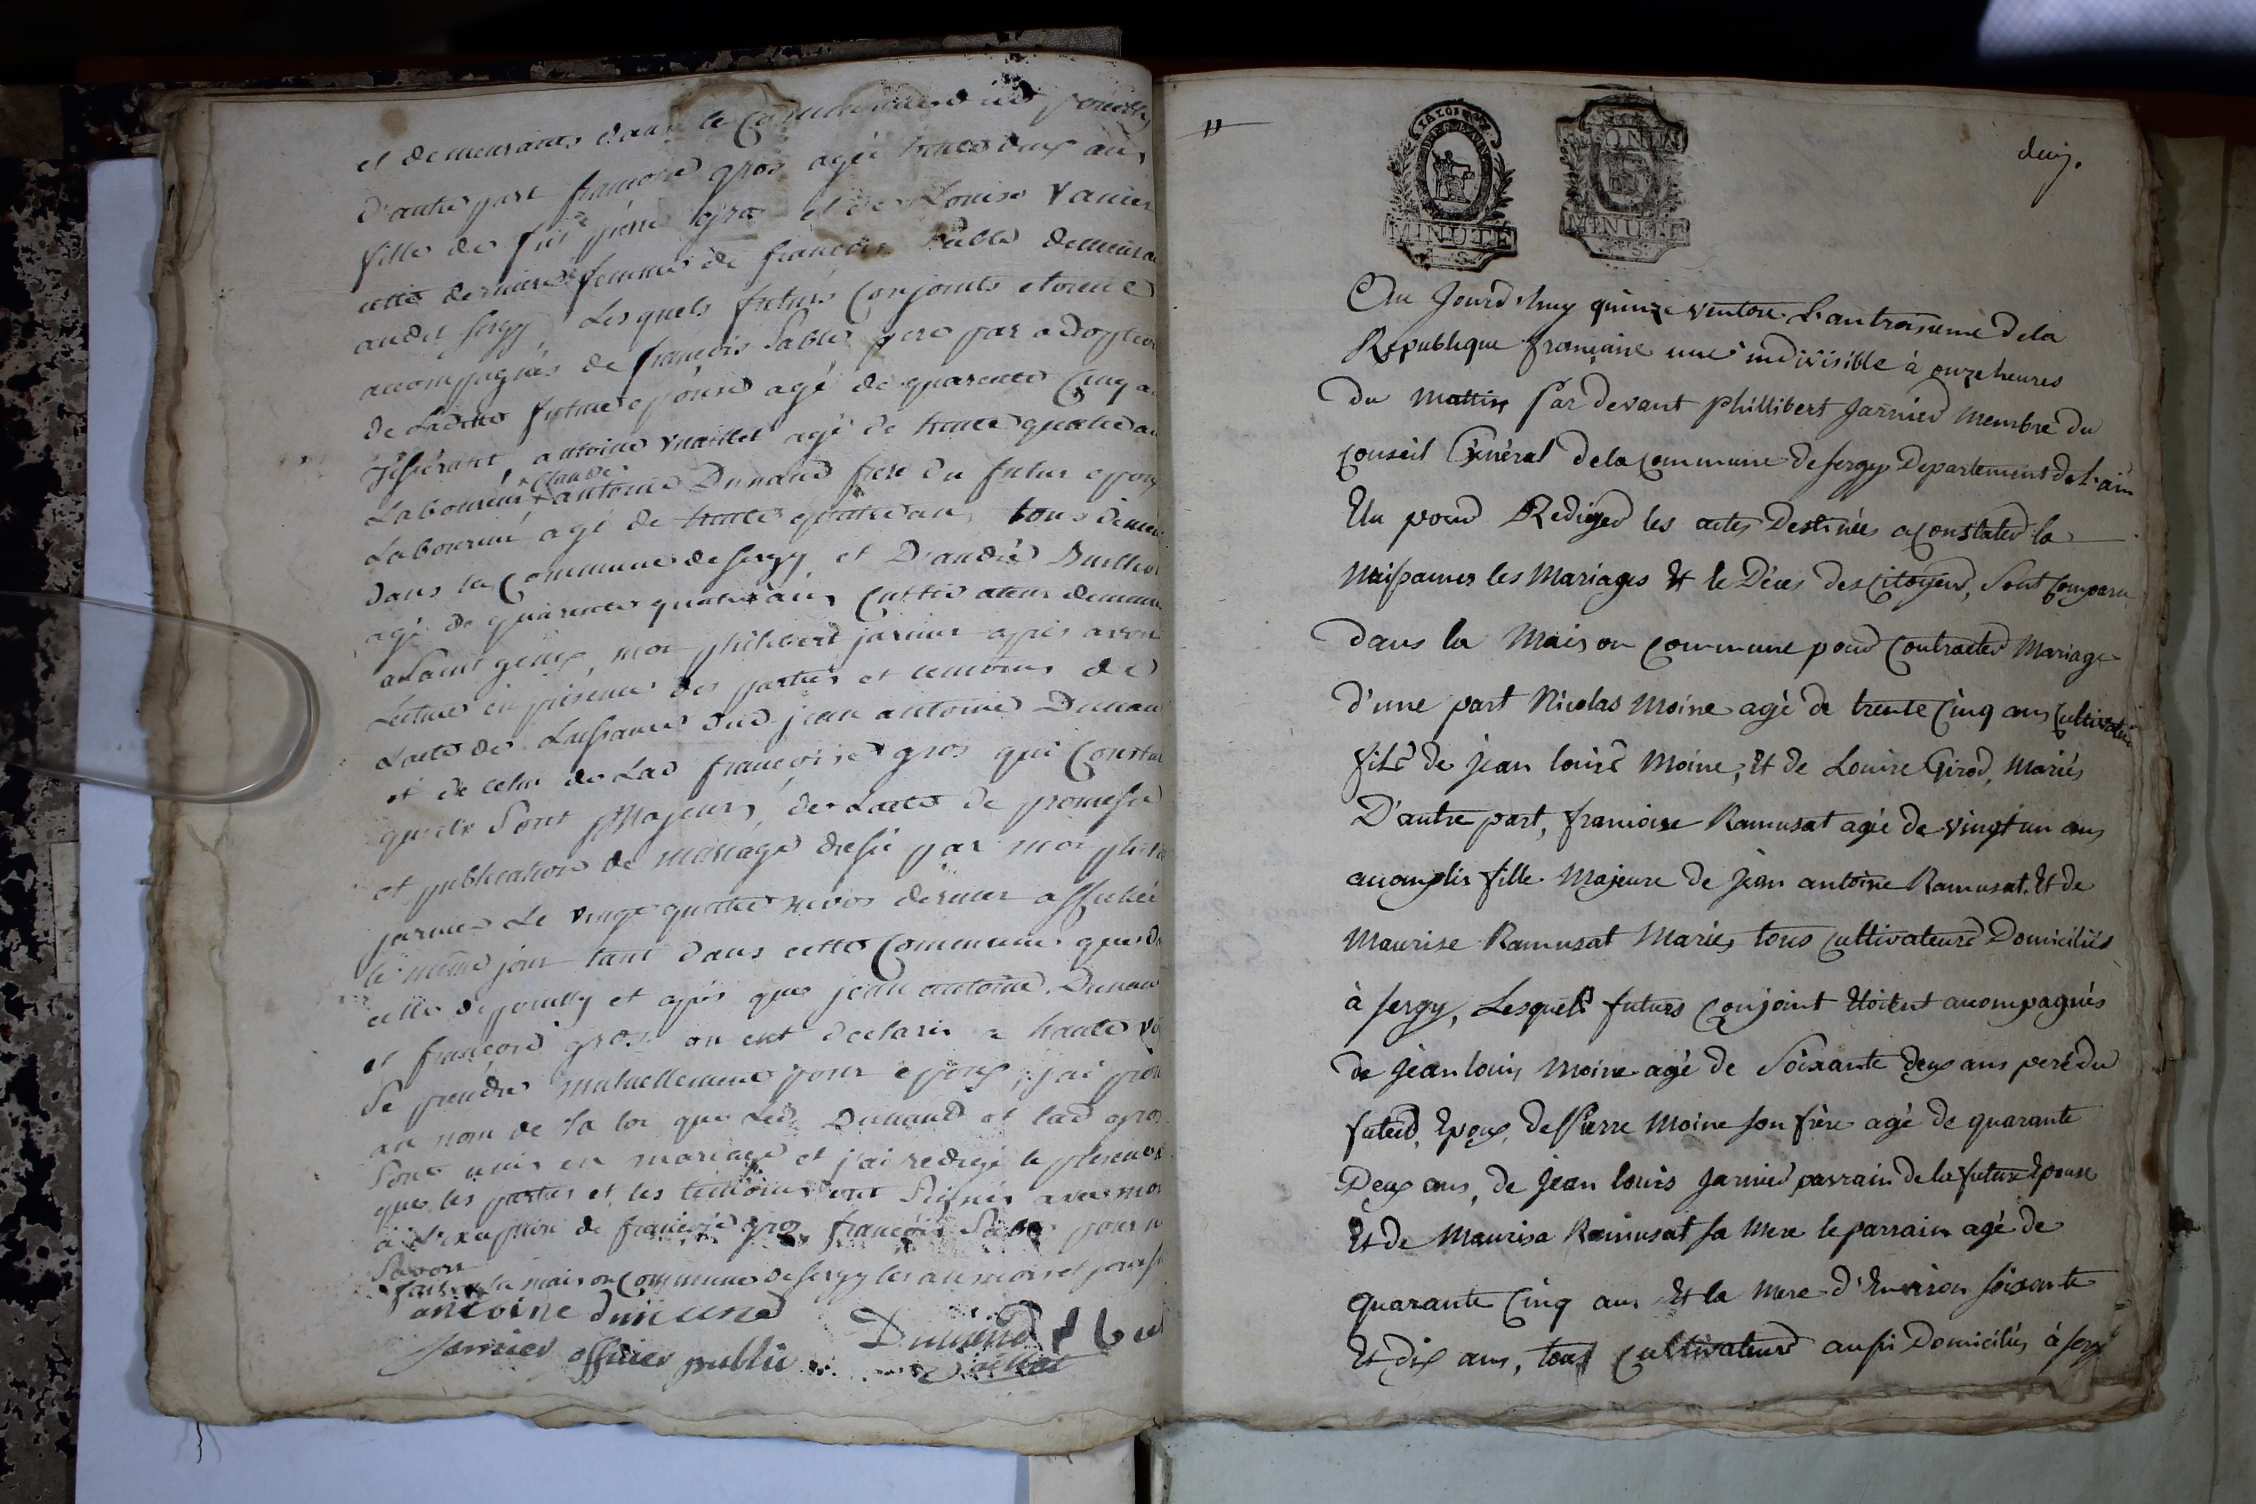 et demeurants dans la Commune de
d'autre part francoise gros agée trente deux ans
fille de feu pierre gros et de Louise Vanier
cette derniere femme de francois Sable demeura
audit Sergy, Lesquels futurs Conjoints etoient
accompagnés de francois Sable pere par adoption
de Ladite future epouse agé de quarente Cinq a
antoine vuaillet agé de trente quatre an
claude
Laboureur antoine Dunand frere du futur epoux
Laboureur agé de trente quatre an, tous demeu
dans la Commune de Sergy et D'andré
agé de quarente quatre ans Cultivateur demeura
a Saint genix, moi philibert jarnier après avoir
Lecture en présence des parties et temoins de
Lacte de Naissance dud jean antoine Dunan
et de celui de Lad francoise gros qui Consta
quils Sont Majeurs, de Lacte de promesse
et publication de mariage dressé par moi phili
jarnier Le vingt quatre nivos dernier affichée
le même jour tant dans cette Commune que d
celle de pouilly et après que jean antoine Dunan
et francoise gros on eut declaré a haute vo
Se prendre mutuellement pour epoux, j'ai pron
au nom de la loi que Led Dunand et lad gros
Sont unis en mariage et j'ai redigé le present
que les parties et les temoins ont Signés avec moi
à L'exception de francoise gros francois Sable pour n
Savoir
fait en la maison Commune de Sergy les an mois et jour
antoine dunand
Dunand
Jarnier officier public
11
deux.
MINUTE
MINUTE
Au Jourd'huy quinze ventose L'an troisieme de la
Republique françaine une indivisible à onze heures
du Mattin Par devant Phillibert Jarnier Membre du
Conseil Général de la Commune de Sergy Departement de L'ain
Elu pour Rediger les actes Destinés a Constater la
Naissances les Mariages Et le Déces des Citoyens, Sont Comparu
dans la Maison Commune pour Contracter Mariage
d'une part Nicolas Moine agé de trente Cinq ans Cultivateur
fils de Jean louis Moine, Et de Louise Girod, Mariés
D'autre part, francoise Ramusat agée de vingt un ans
accomplis fille Majeure de Jean antoine Ramusat. Et de
Maurise Ramusat Mariés tous Cultivateurs Domiciliés
à Sergy, Lesquels futurs Conjoint Etoient accompagnés
de Jean louis Moine agé de Soixante deux ans pere du
futur, Epoux, de Pierre Moine son frère agé de quarante
Deux ans, de Jean louis Jarnier parrain de la future Epouse
Et de Maurisa Ramusat sa Mere le parrain agé de
quarante Cinq ans Et la Mere d'Environ Soixante
Et dix ans, tous Cultivateurs aussi Domiciliés à Sergy